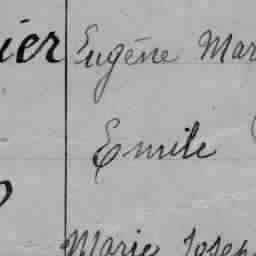 ier Eugène Mar
Emile
Marie Joseph